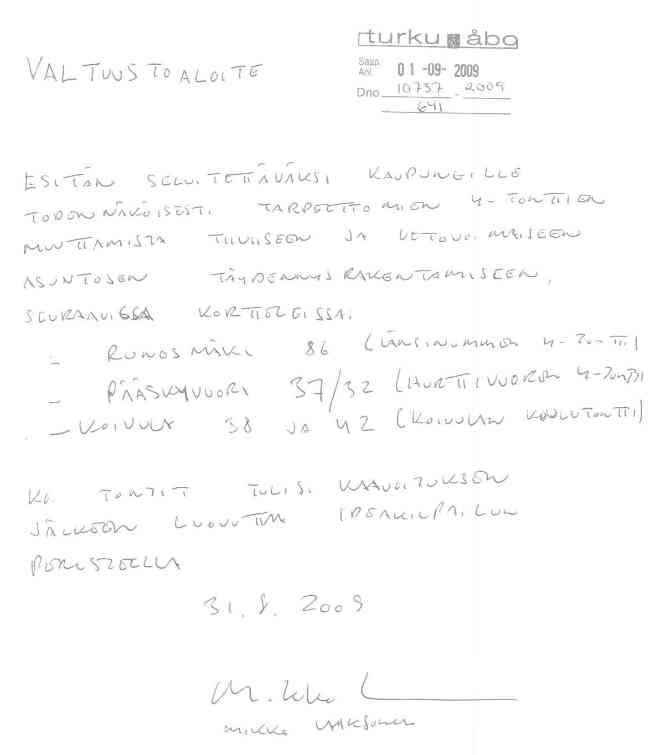 turku åbo
Saap.
Ank. 01-09-2009
Dno 10737 - 2009
641
VALTUUSTOALOITE
ESITÄN SELVITETTÄVÄKSI KAUPUNGILLE
TODENNÄKÖISESTI TARPEETTOMIEN Y-TONTTIEN
MUUTTAMISTA TIIVIISEEN JA VETOVOIMAISEEN
ASUNTOJEN TÄYDENNYSRAKENTAMISEEN,
SEURAAVISSA KORTTELEISSA:
- RUNOSMÄKI 86 (LÄNSINUMMEN Y-TONTTI)
- PÄÄSKYVUORI 37/32 (HURTTIVUOREN Y-TONTTI
- KOIVULA 38 JA 42 (KOIVULAN KOULUTONTTI)
KO. TONTIT TULISI KAAVOITUKSEN
JÄLKEEN LUOVUTTAA IDEAKILPAILUN
PERUSTEELLA
31.8.2009
MIKKO LAAKSONEN